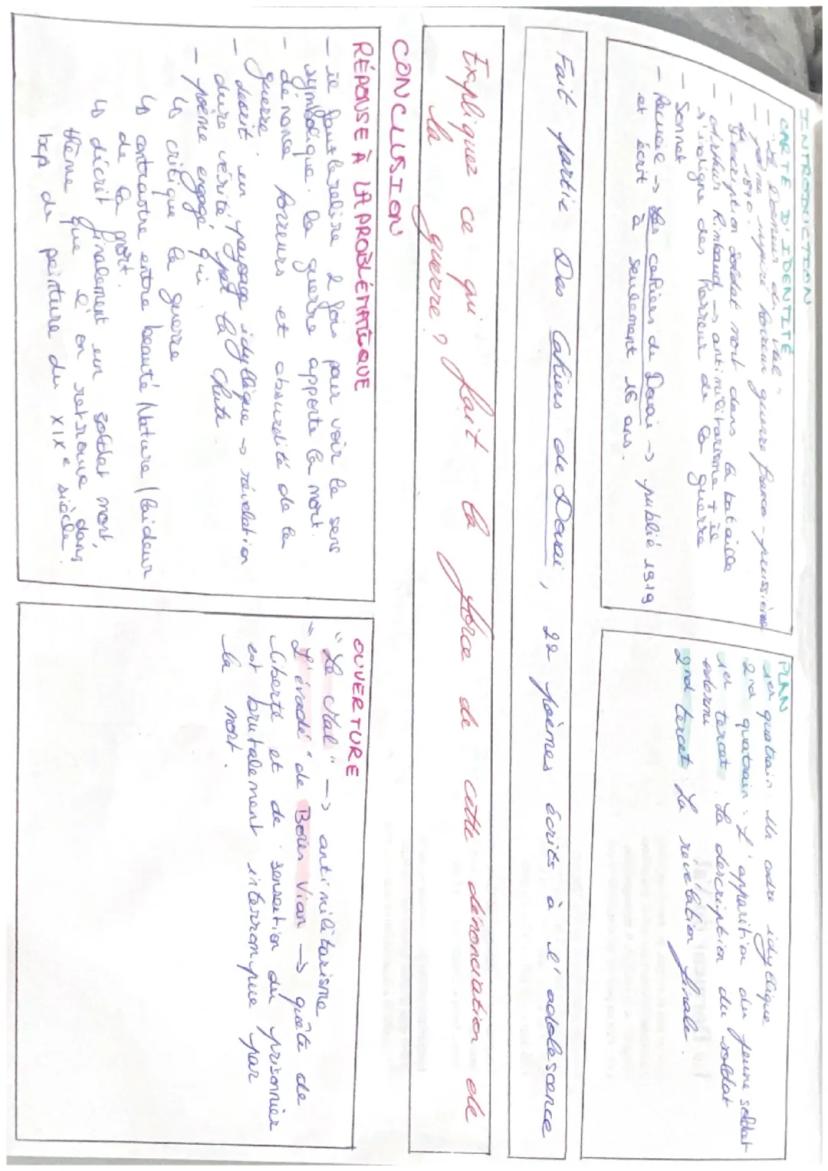 INTRODUCTION
CARTE D'IDENTITÉ
- "Le Dormeur du val"
- poème inspiré horreur guerre franco-prussienne
1870.
- description soldat mort dans la bataille
- Arthur Rimbaud → antimilitarisme + il
s'indigne des horreur de la guerre
- Sonnet
- Recueil → Les cahiers de Douai → publié 1919
et écrit à seulement 16 ans.
PLAN
1er quatrain Un cadre idyllique
2nd quatrain: L'apparition du jeune soldat
1er tercet. La description du soldat
endormi
2nd tercet. La révélation finale.
Fait partie Des Cahiers de Douai, 22 poèmes écrits à l'adolescence
Expliquez ce qui fait la force de cette dénonciation de
la guerre?
CONCLUSION
RÉPONSE À LA PROBLÉMATIQUE
- il faut le relire 2 fois pour voir le sens
symbolique. la guerre apporte la mort.
- dénonce horreurs et absurdité de la
guerre.
- décrit un paysage idyllique → révélation
dure vérité par la chute
- poème engagé qui :
↳ critique la guerre
↳ contraste entre beauté Nature / laideur
de la mort.
↳ décrit finalement un soldat mort,
thème que l'on retrouve dans
bcp de peinture du XIXe siècle.
OUVERTURE
"Le Mal" → antimilitarisme
"L'évadé" de Boris Vian → quête de
liberté et de sensation du prisonnier
est brutalement interrompue par
la mort.